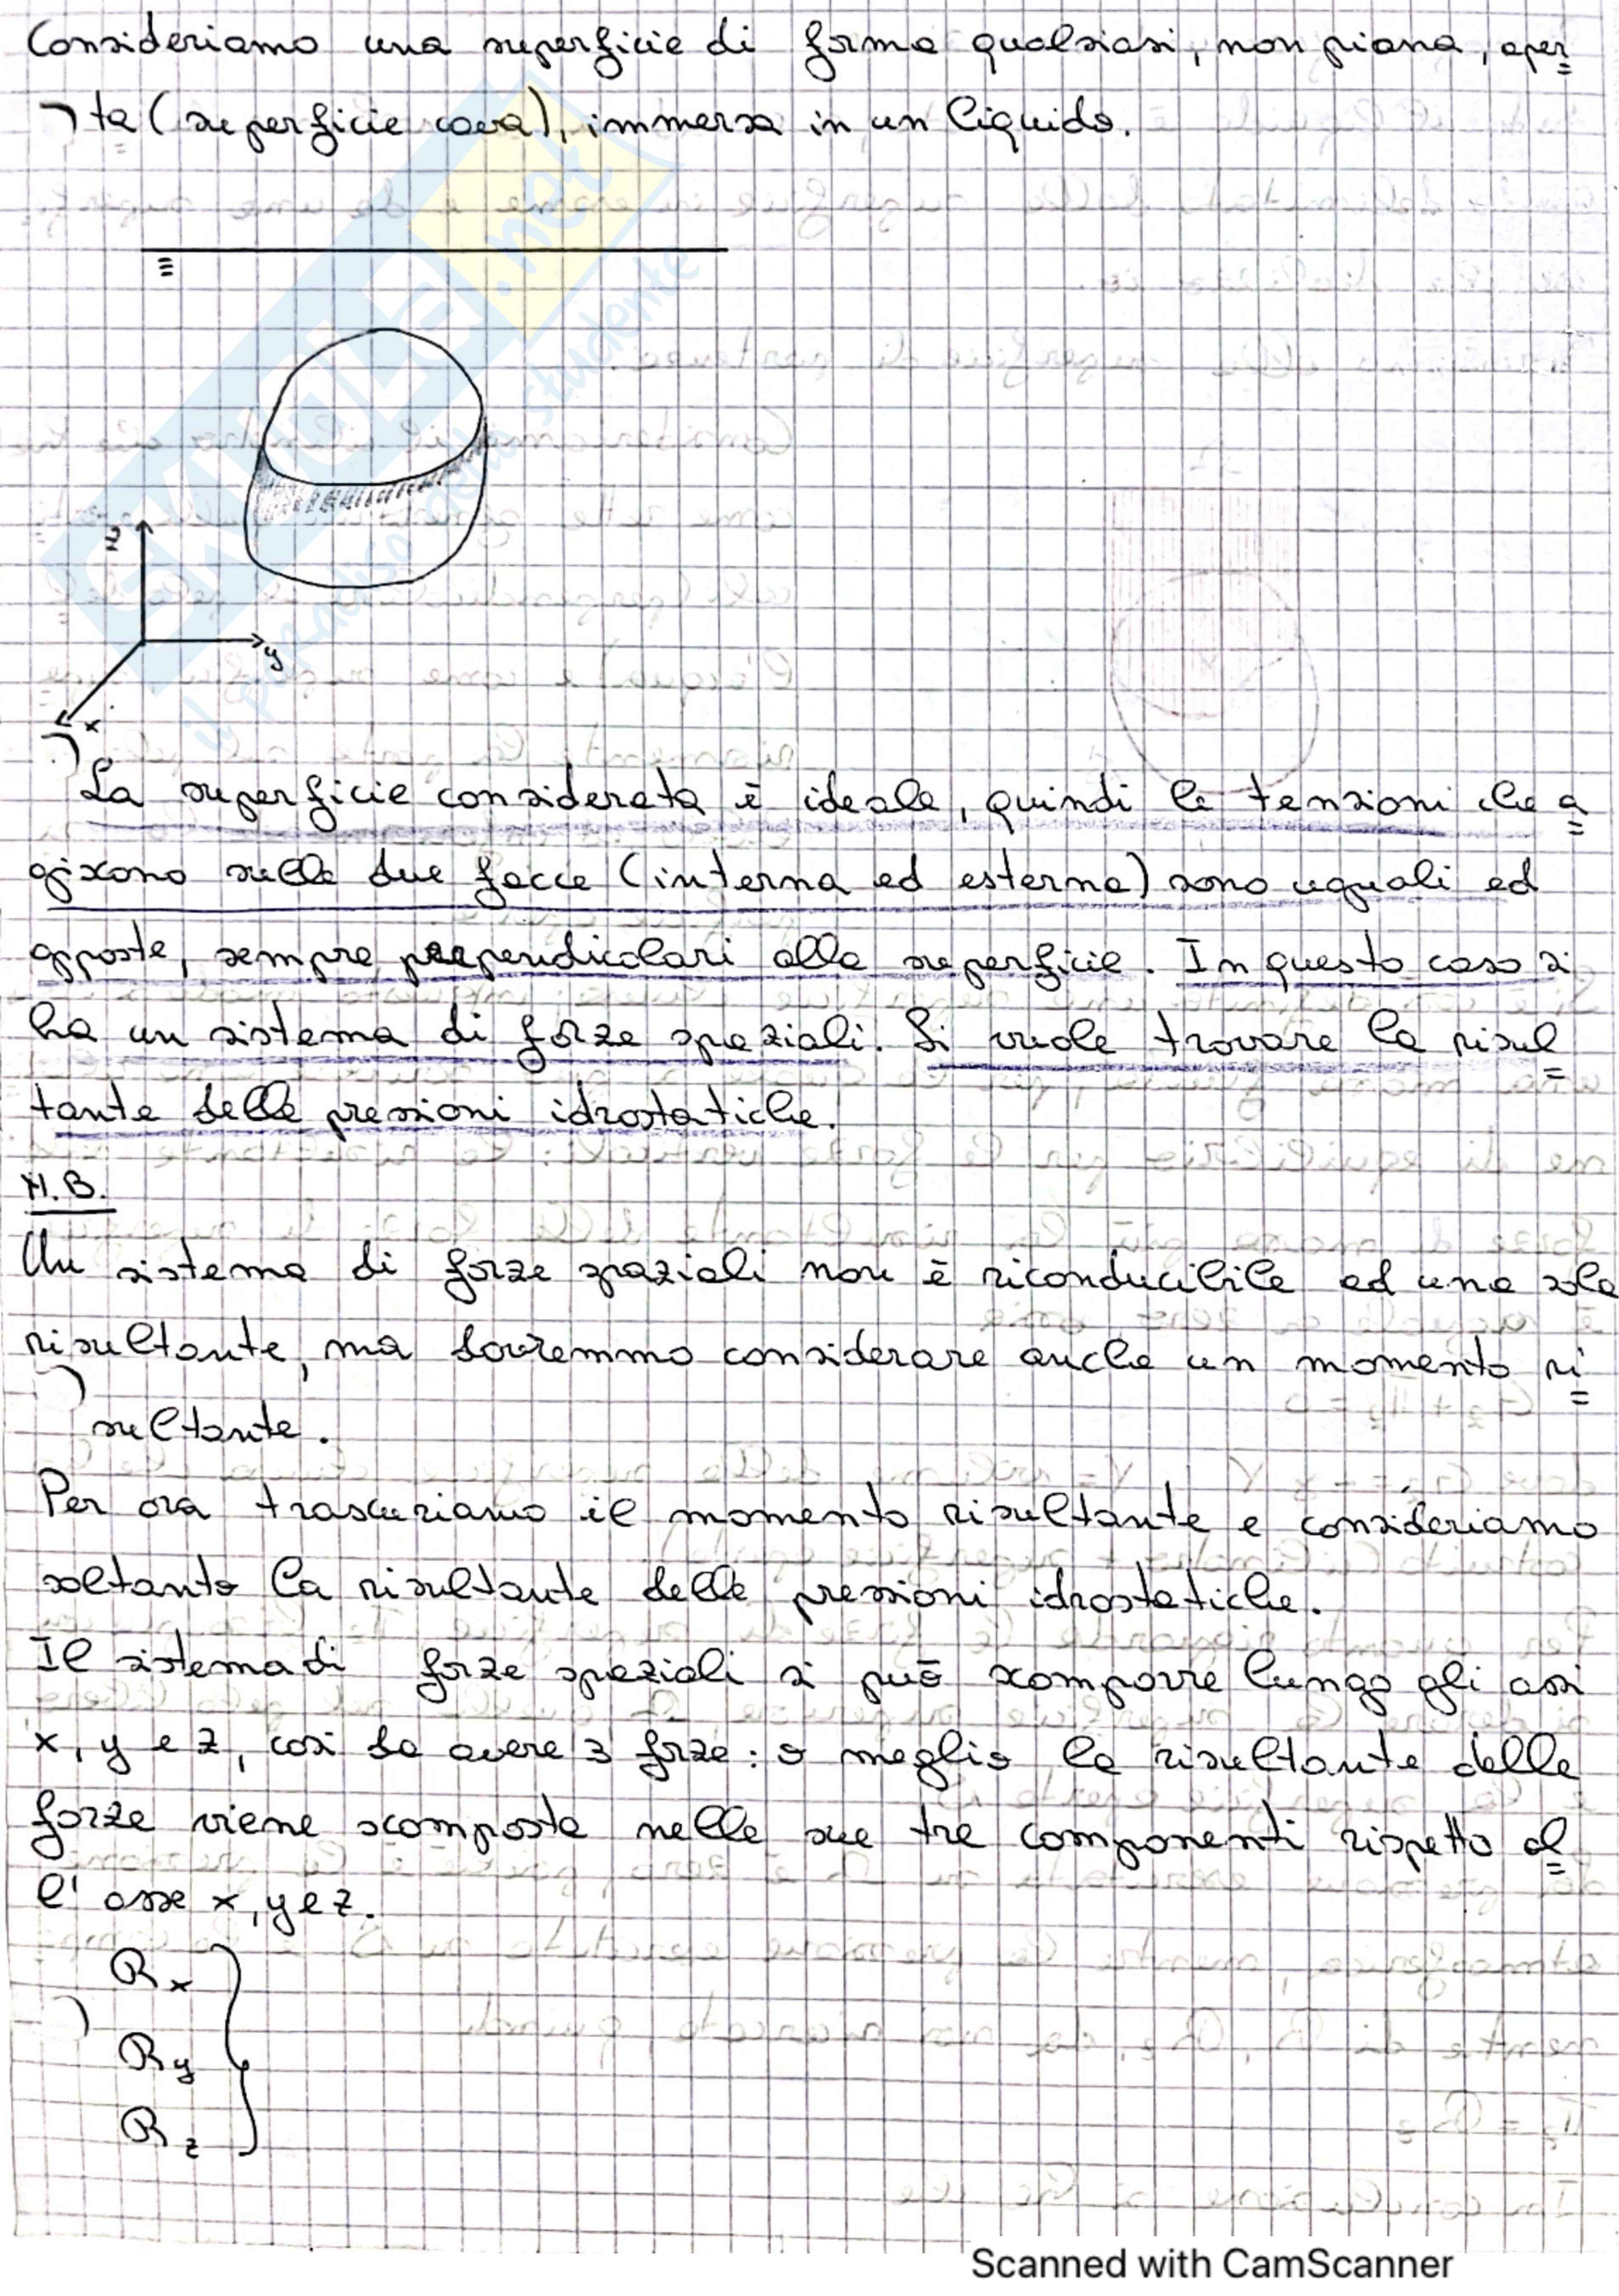 Consideriamo una superficie di forma qualsiasi, non piana, aper
ta (superficie cava), immersa in un liquido.
z
y
x
La superficie considerata è ideale, quindi le tensioni che a
giscono sulle due facce (interna ed esterna) sono uguali ed
opposte, sempre perpendicolari alla superficie. In questo caso si
ha un sistema di forze spaziali. Si vuole trovare la risul
tante delle pressioni idrostatiche.
N.B.
Un sistema di forze spaziali non è riconducibile ad una sola
risultante, ma dovremmo considerare anche un momento ri
sultante.
Per ora trascuriamo il momento risultante e consideriamo
soltanto la risultante delle pressioni idrostatiche.
Il sistema di forze spaziali si può scomporre lungo gli assi
x, y e z, così da avere 3 forze: o meglio la risultante delle
forze viene scomposta nelle sue tre componenti rispetto al
l'asse x, y e z.
Rx
Ry
Rz
SKUOLA.net
il paradiso dello studente
Scanned with CamScanner